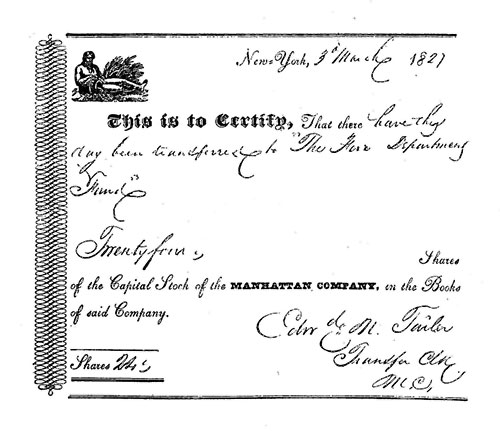 New-York, 3d March 1827
This is to Certify, That there have this
day been transferred to "The Fire Department
Fund"
Twenty four, Shares
of the Capital Stock of the MANHATTAN COMPANY, in the Books
of said Company.
Edwd. M. Tailer
Transfer Clk
M. C.
Shares 24